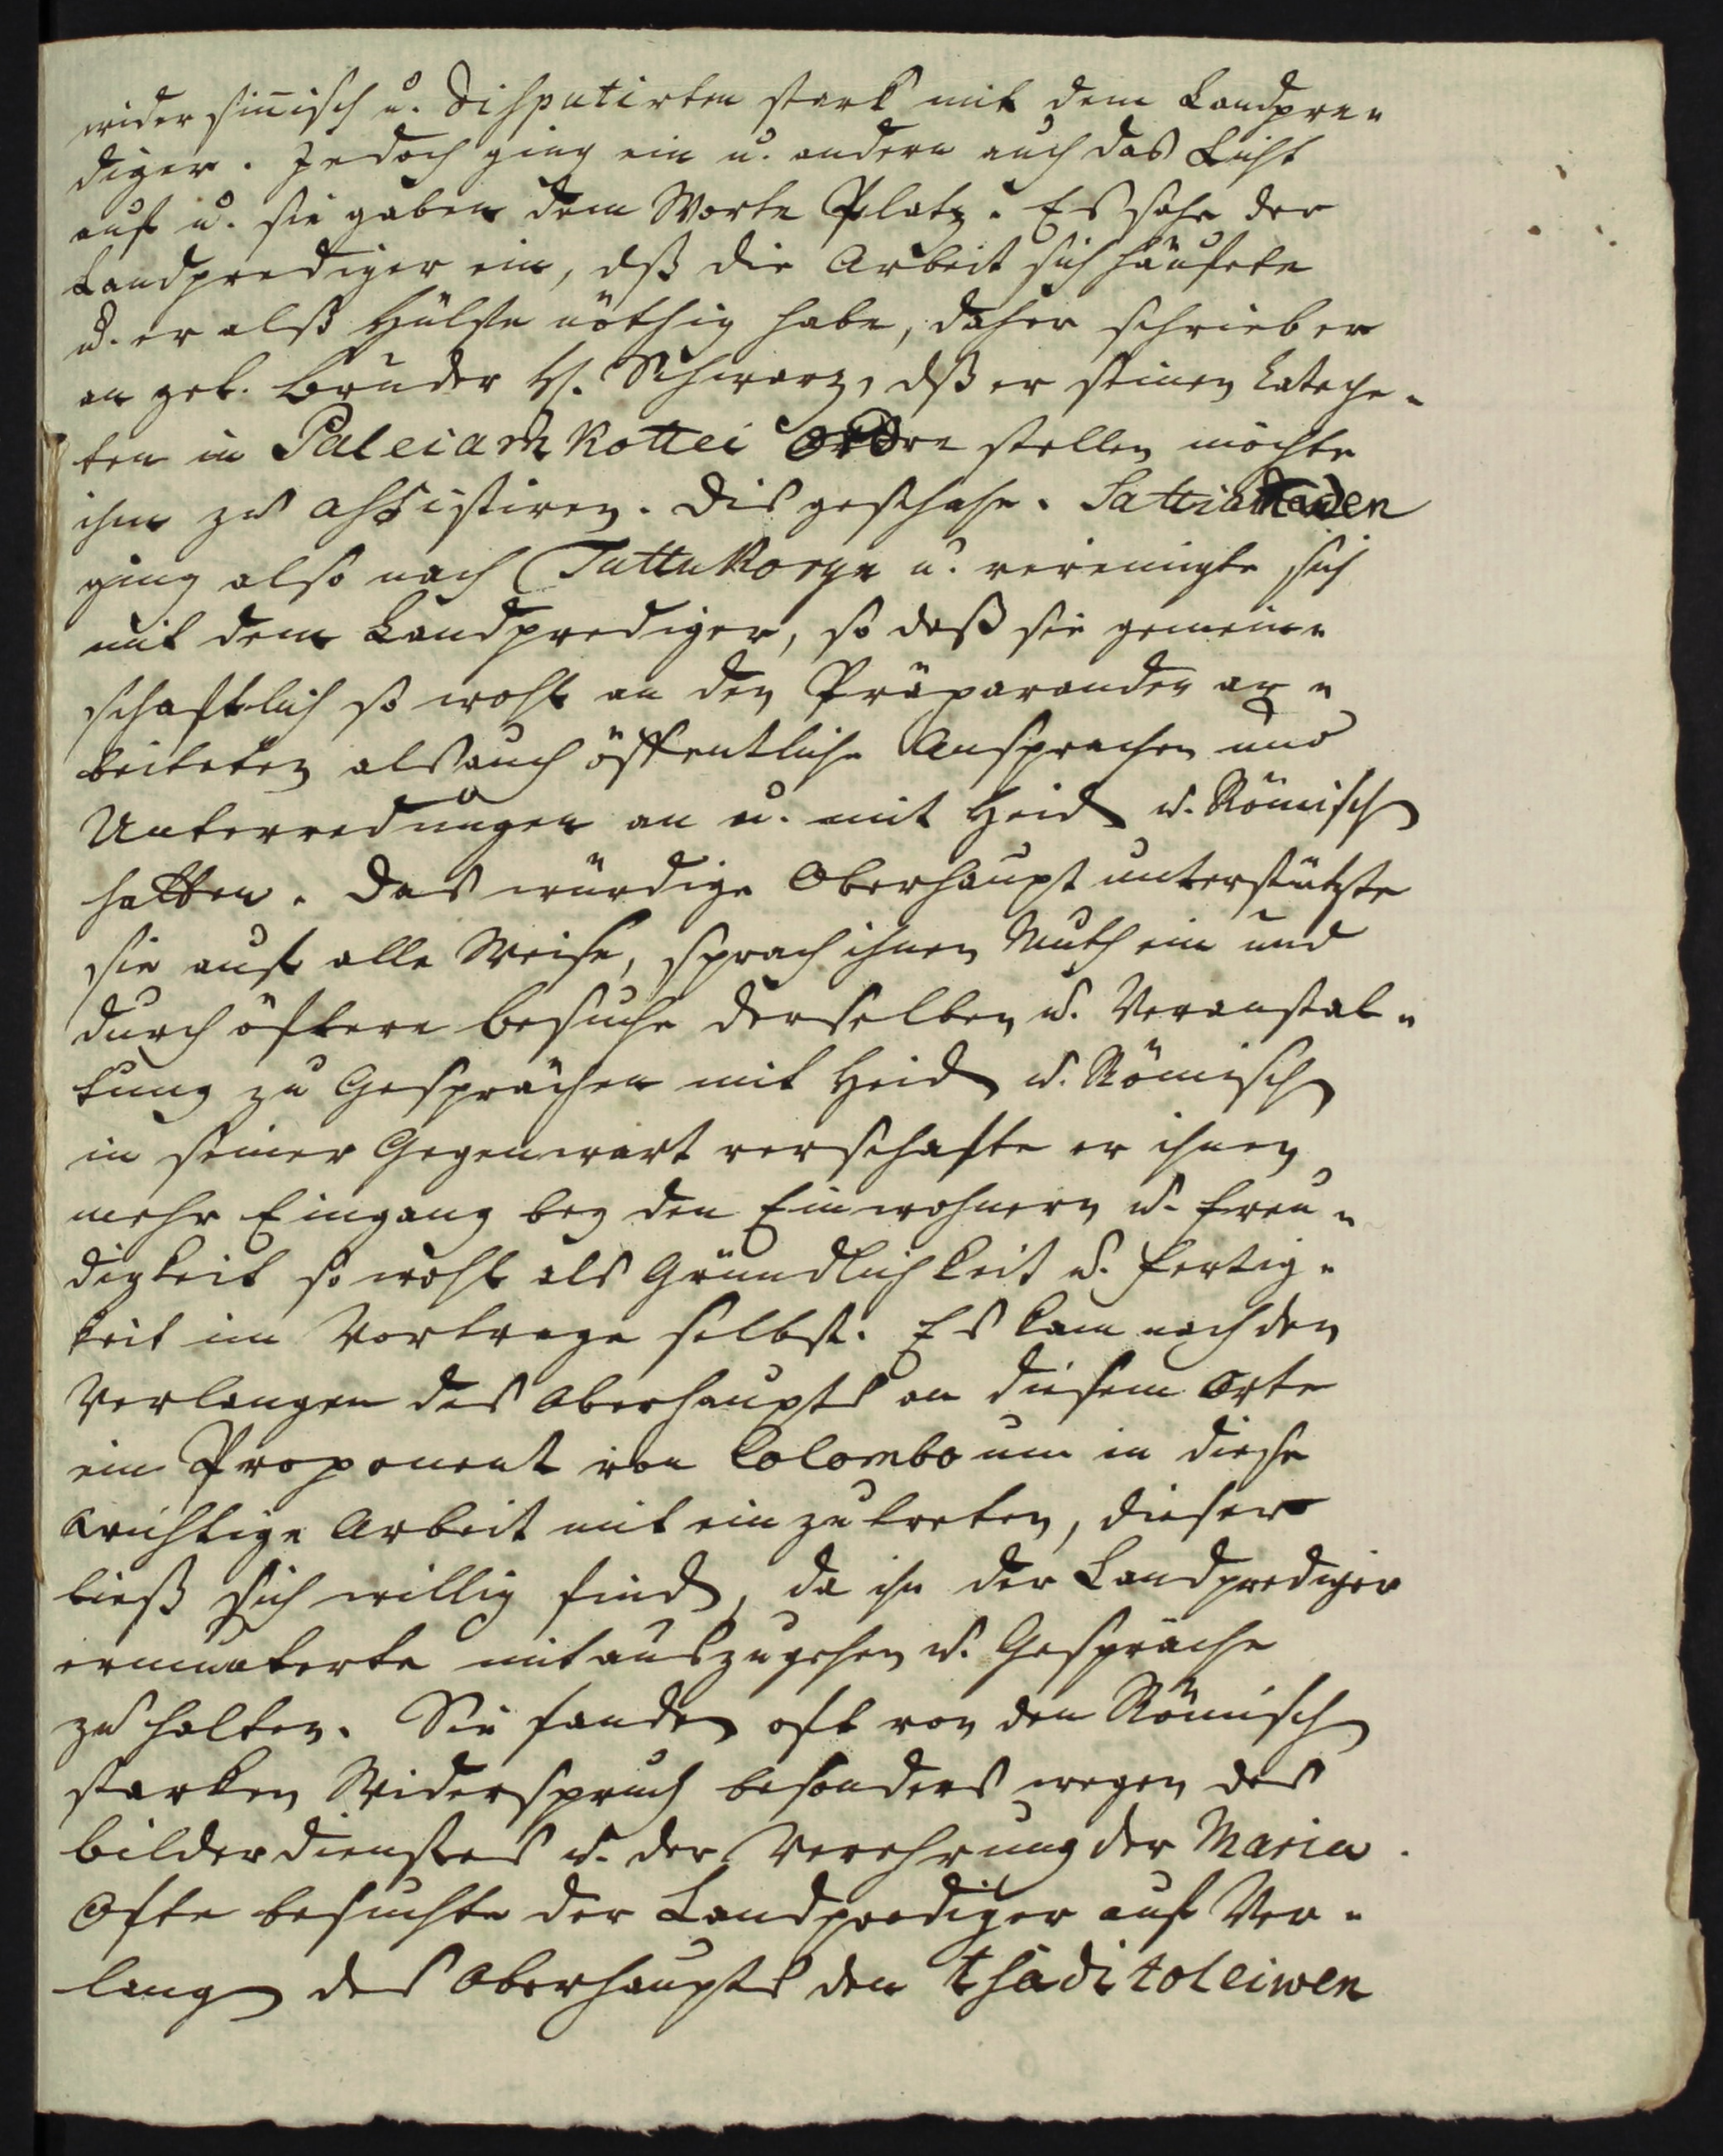 widersin̄isch u. Disputirten stark mit dem Landpre-
diger. Jedoch ging ein u. andern auch das Licht
auf u. sie gaben dem Worte Platz. Es sahe der
Landprediger ein, dß die Arbeit sich häufete
u. er alß Hülfe nöthig habe, daher schrieb er
an gel. Bruder H. Schwarz, dß er seinen Cateche-
ten in Paleiamkottei Ordre stellen möchte
ihm zu assistiren. Dis geschahe. Sattianaden
ging also nach Tuttukoryn u. vereinigte sich
mit dem Landprediger, so daß sie gemein-
schaftlich so wohl an den Präparanden ar-
beiteten als auch öffentliche Ansprachen und
Unterredungen an u. mit Heid u. Römisch
hatten. Das würdige Oberhaupt unterstützte
sie auf alle Weise, sprach ihnen Muth ein und
durch öftere Besuche derselben u. Veranstal-
tung zu Gesprächen mit Heid u. Römisch
in seiner Gegenwart verschafte er ihnen
mehr Eingang bey den Einwohnern u. Freu-
digkeit so wohl als Gründlichkeit u. Fertig-
keit im Vortrage selbst. Es kam nach den
Verlangen des Oberhaupts an diesem Orte
ein Proponent von Colombo um in diese
wichtige Arbeit mit einzutreten, dieser
ließ sich willig find, da ihn der Landprediger
ermunterte mit auszugehen u. Gespräche
zu halten. Sie fanden oft von den Römisch
starken Widerspruch besonders wegen des
Bilderdienstes u. der Verehrung der Maria.
Ofte besuchte der Landprediger auf Ver-
lang des Oberhaupts den tshaditoleiwen